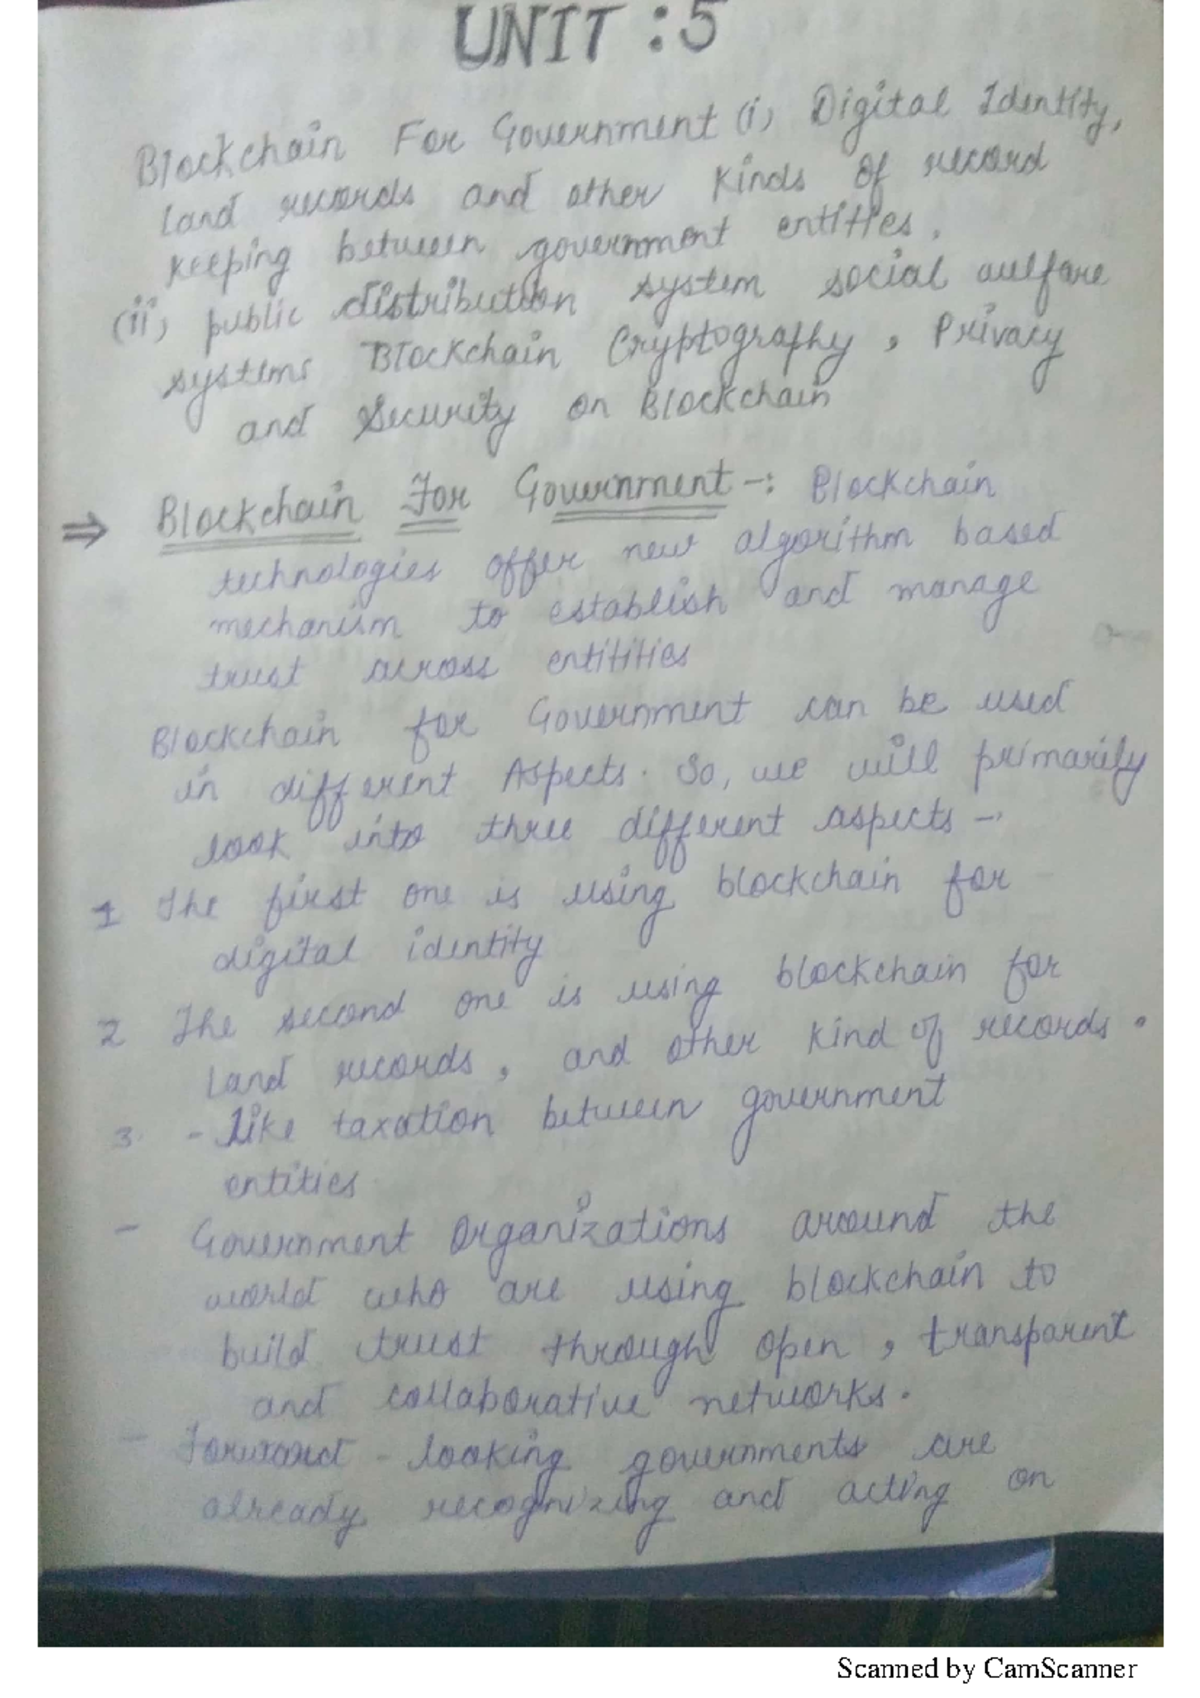 UNIT : 5
Blockchain For Government (i) Digital Identity,
land records and other kinds of record
keeping between government entities.
(ii) public distribution system social welfare
systems Blockchain Cryptography, Privacy
and Security on Blockchain
⇒ Blockchain For Government -: Blockchain
technologies offer new algorithm based
mechanism to establish and manage
trust across entitities
Blockchain for Government can be used
in different Aspects. So, we will primarily
look into three different aspects -:
1 The first one is using blockchain for
digital identity
2 The second one is using blockchain for
land records, and other kind of records.
3. - like taxation between government
entities
- Government Organizations around the
world who are using blockchain to
build trust through open, transparent
and collaborative networks.
- Forward - looking governments are
already recognizing and acting on
Scanned by CamScanner